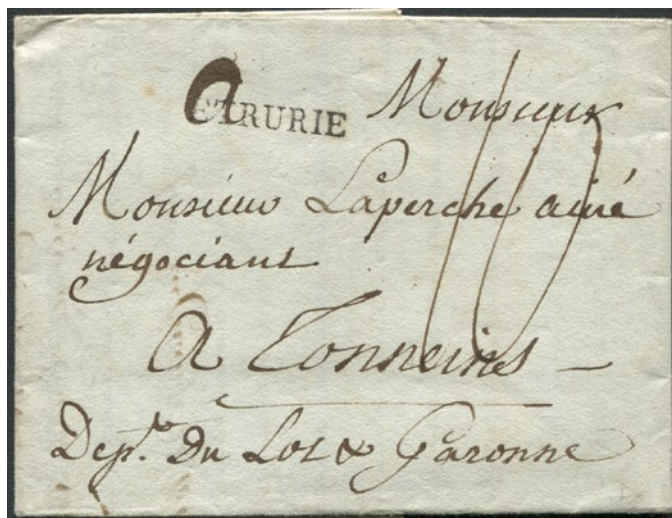 ETRURIE Monsieur
Monsieur Laperche ainé
négociant
a Tonneins
Dept. Du Lot & Garonne